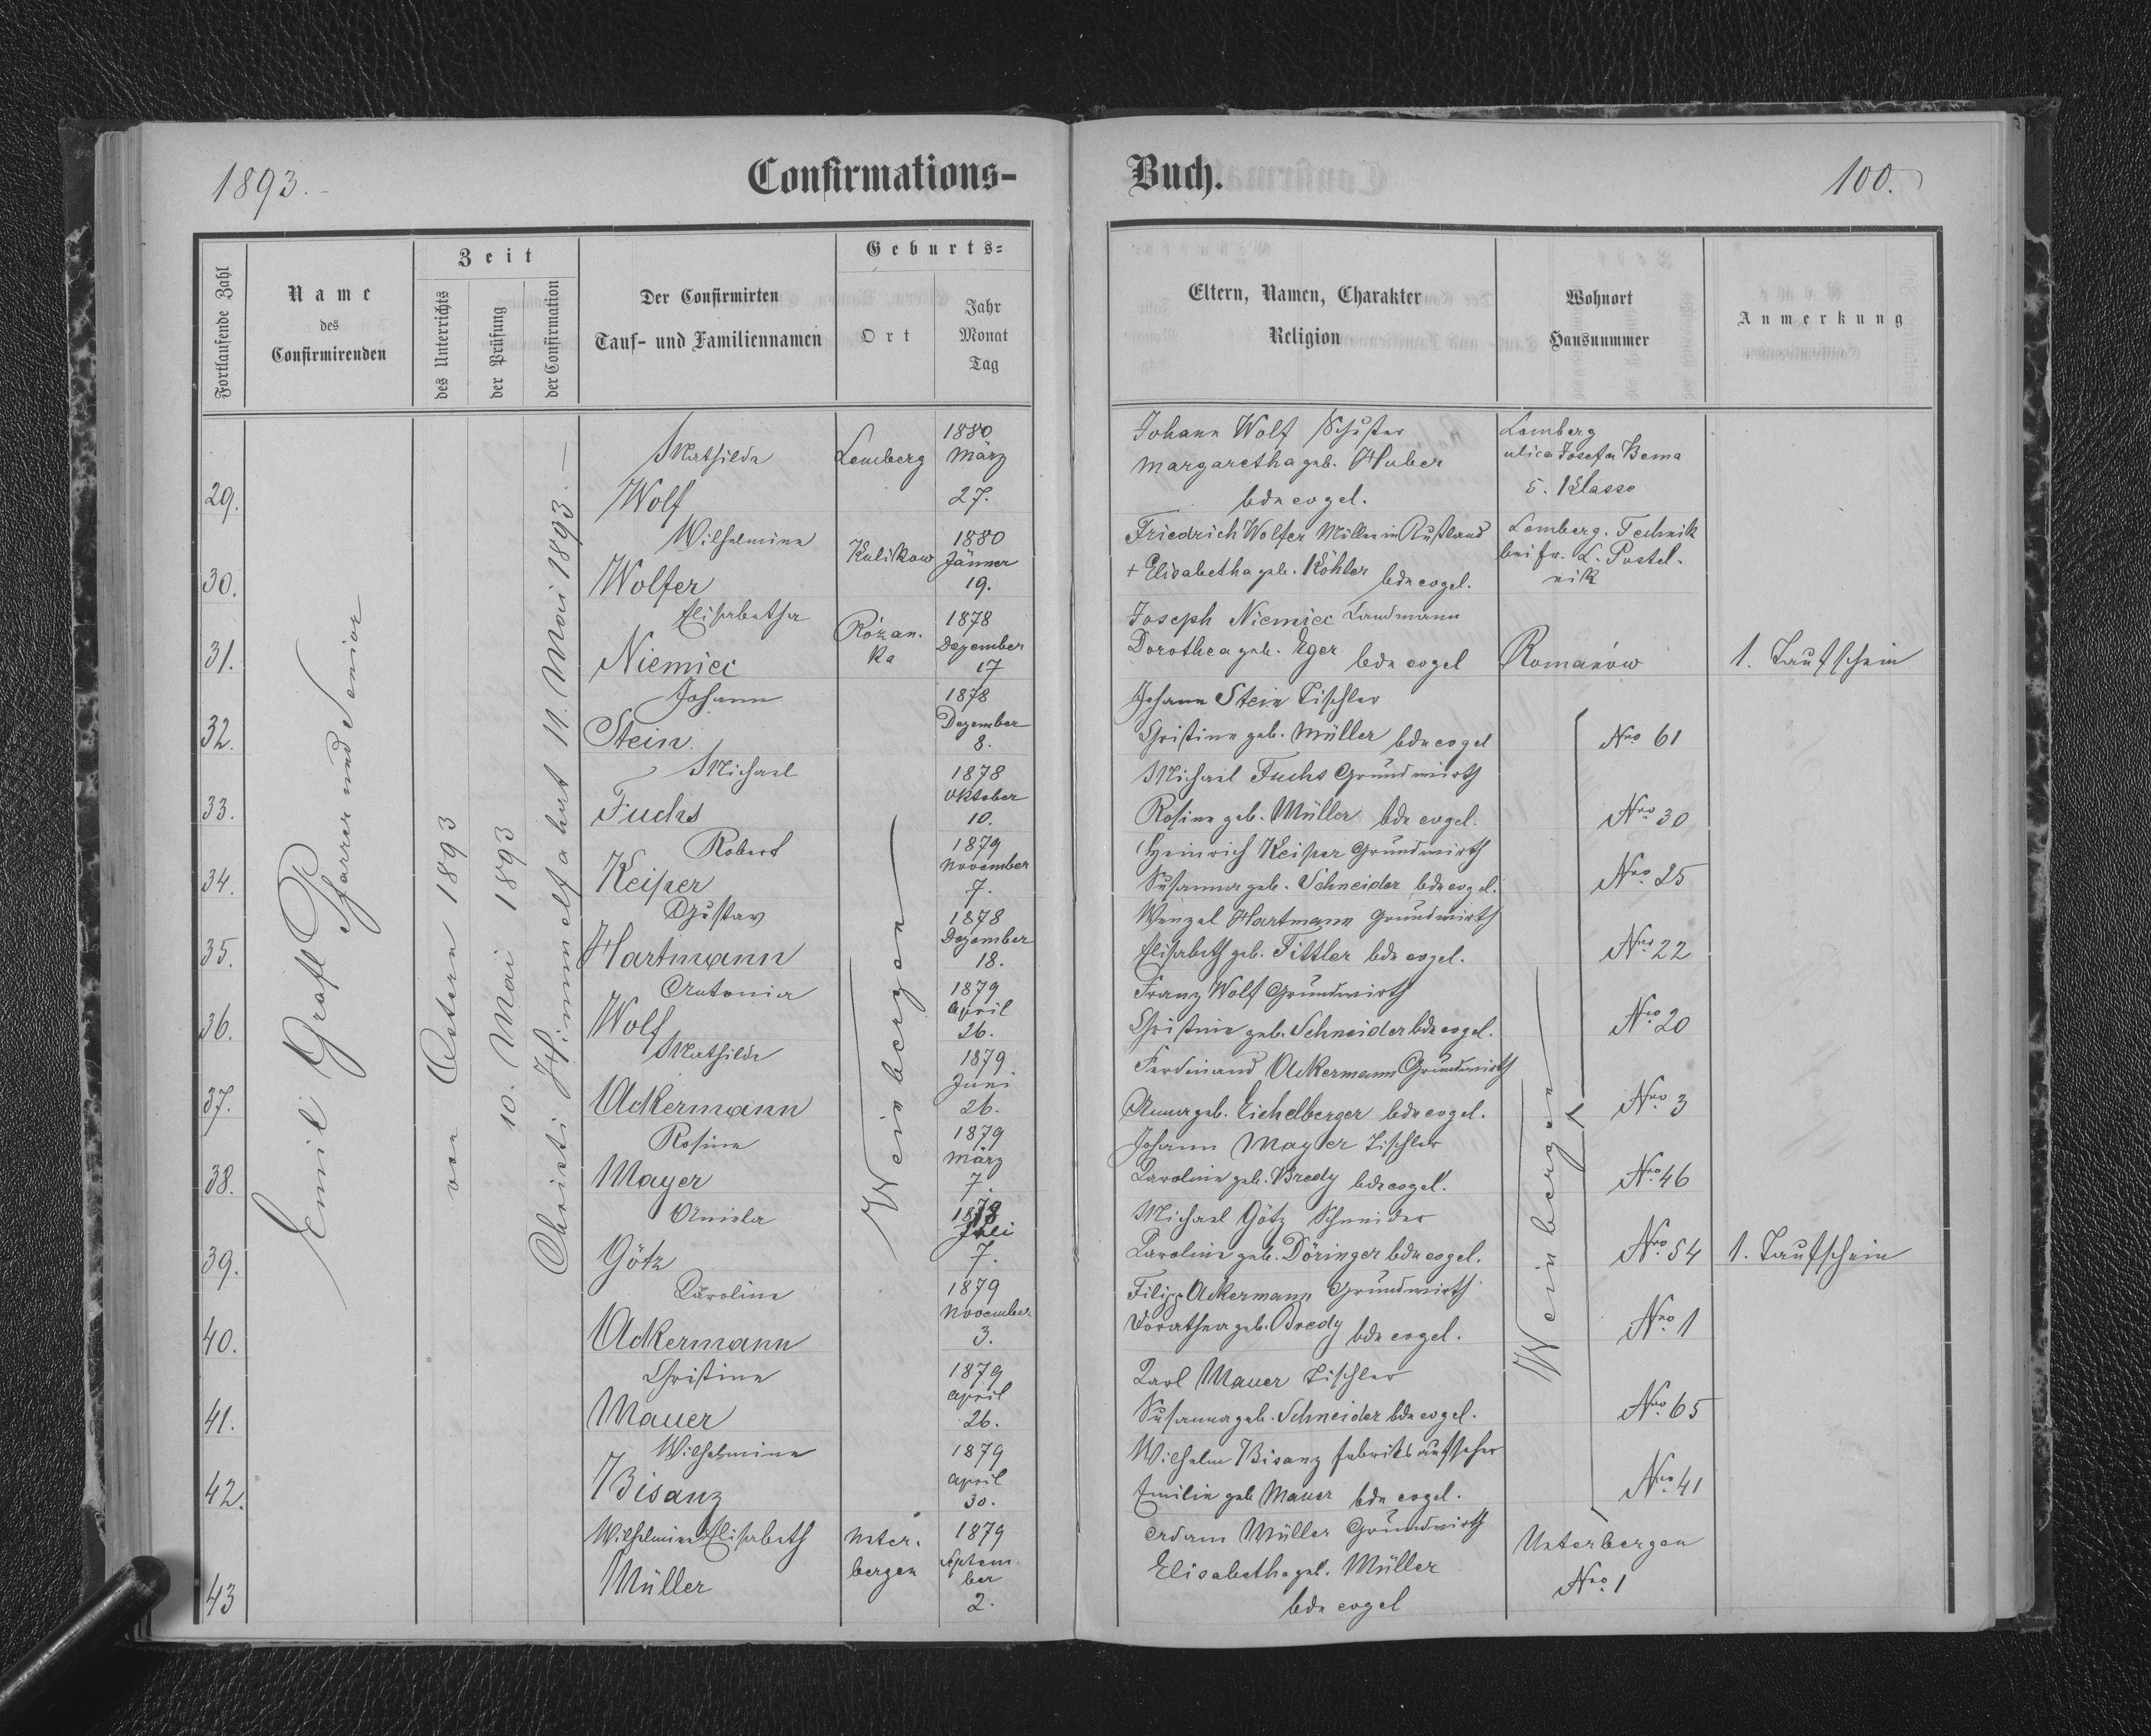 1893.
Confirmations-
Buch.
100.
Fortlaufende Zahl
Name
des
Confirmirenden
Zeit
des Unterrichts
der Prüfung
der Confirmation
Der Confirmirten
Tauf- und Familiennamen
Geburts-
Ort
Jahr
Monat
Tag
Eltern, Namen, Charakter
Religion
Wohnort
Hausnummer
Anmerkung
Emil Grafl Pfarrer und Senior
von Ostern 1893
10. Mai 1893
Christi Himmelfahrt 11. Mai 1893.
29.
Mathilde
Wolf
Lemberg
1880
März
27.
Johann Wolf Schuster
Margaretha geb. Huber
bde evgel.
Lemberg
ulica Josefa Bema
5. Klasse
30.
Wilhelmine
Wolfer
Kulikow
1880
Jänner
19.
Friedrich Wolfer Müller in Rußland
+ Elisabetha geb. Köhler bde evgel.
Lemberg. Technik
bei Fr. L. Postel-
nik
31.
Elisabetha
Niemiec
Rózan-
ka
1878
Dezember
17
Joseph Niemiec Landmann
Dorothea geb. Eger bde evgel
Romanów
1. Taufschein
Weinbergen
Weinbergen
32.
Johann
Stein
1878
Dezember
8.
Johann Stein Tischler
Christine geb. Müller bde evgel
Nro 61
33.
Michael
Fuchs
1878
Oktober
10.
Michael Fuchs Grundwirth
Rosine geb. Müller bde evgel.
Nro 30
34.
Robert
Keiper
1879
November
7.
Heinrich Keiper Grundwirth
Susanna geb. Schneider bde evgel.
Nro 25
35.
Gustav
Hartmann
1878
Dezember
18.
Wenzel Hartmann Grundwirth
Elisabeth geb. Tittler bde evgel.
Nro 22
36.
Antonia
Wolf
1879
April
26.
Franz Wolf Grundwirth
Christine geb. Schneider bde evgel.
Nro 20
37.
Mathilde
Ackermann
1879
Juni
26.
Ferdinand Ackermann Grundwirth
Anna geb. Eichelberger bde evgel.
Nro 3
38.
Rosine
Mayer
1879
März
7.
Johann Mayer Tischler
Karoline geb. Bredy bde evgel.
Nro 46
39.
Amiela
Götz
Juli
7.
Michael Götz Schneider
Karoline geb. Döringer bde evgel.
Nro 54
1. Taufschein
40.
Karoline
Ackermann
1879
November
3.
Filipp Ackermann Grundwirth
Dorathea geb. Bredy bde evgel.
Nro 1
41.
Christine
Mauer
1879
April
26.
Karl Mauer Tischler
Susanna geb. Schneider bde evgel.
Nro 65
42.
Wilhelmine
Bisanz
1879
April
30.
Wilhelm Bisanz Fabriksaufseher
Emilie geb Mauer bde evgel.
Nro 41
43
Wilhelmine Elisabeth
Müller
Unter-
bergen
1879
Septem
ber
2.
Adam Müller Grundwirth
Elisabetha geb. Müller
bde evgel
Unterbergen
Nro 1